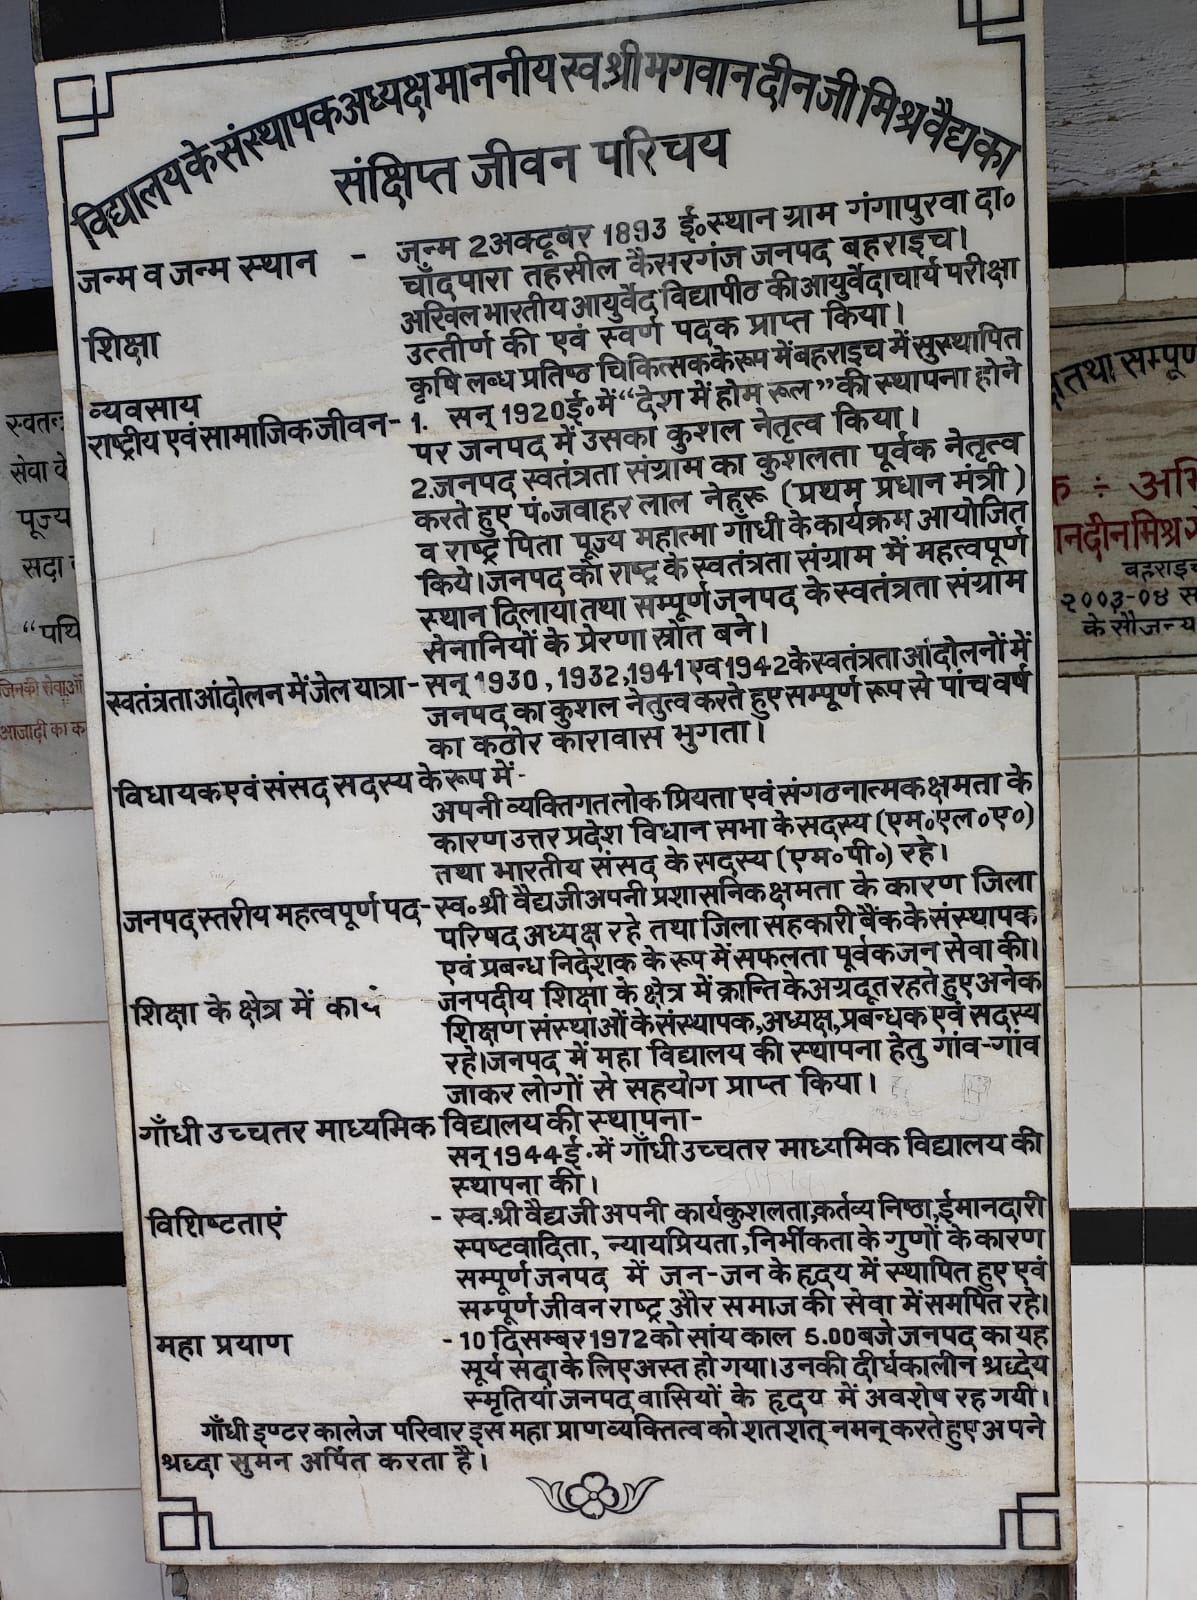 विद्यालय के संस्थापक अध्यक्ष माननीय स्व.श्री भगवान दीन जी मिश्र वैद्य का
संक्षिप्त जीवन परिचय
जन्म व जन्म स्थान - जन्म 2 अक्टूबर 1893 ई॰ स्थान ग्राम गंगापुरवा दा॰
चाँदपारा तहसील कैसरगंज जनपद बहराइच।
शिक्षा अखिल भारतीय आयुर्वेद विद्यापीठ की आयुर्वेदाचार्य परीक्षा
उत्तीर्ण की एवं स्वर्ण पदक प्राप्त किया।
व्यवसाय कृषि लब्ध प्रतिष्ठ चिकित्सक के रूप में बहराइच में सुस्थापित
राष्ट्रीय एवं सामाजिक जीवन - 1. सन् 1920 ई॰ में “देश में होम रूल” की स्थापना होने
पर जनपद में उसका कुशल नेतृत्व किया।
2. जनपद स्वतंत्रता संग्राम का कुशलता पूर्वक नेतृत्व
करते हुए पं॰ जवाहर लाल नेहरू (प्रथम प्रधान मंत्री)
व राष्ट्र पिता पूज्य महात्मा गाँधी के कार्यक्रम आयोजित
किये। जनपद को राष्ट्र के स्वतंत्रता संग्राम में महत्वपूर्ण
स्थान दिलाया तथा सम्पूर्ण जनपद के स्वतंत्रता संग्राम
सेनानियों के प्रेरणा स्रोत बने।
स्वतंत्रता आंदोलन में जेल यात्रा - सन् 1930, 1932, 1941 एव 1942 के स्वतंत्रता आंदोलनों में
जनपद का कुशल नेतुत्व करते हुए सम्पूर्ण रूप से पांच वर्ष
का कठोर कारावास भुगता।
विधायक एवं संसद सदस्य के रूप में -
अपनी व्यक्तिगत लोक प्रियता एवं संगठनात्मक क्षमता के
कारण उत्तर प्रदेश विधान सभा के सदस्य (एम॰एल॰ए॰)
तथा भारतीय संसद के सदस्य (एम॰पी॰) रहे।
जनपद स्तरीय महत्वपूर्ण पद - स्व॰ श्री वैद्य जी अपनी प्रशासनिक क्षमता के कारण जिला
परिषद अध्यक्ष रहे तथा जिला सहकारी बैंक के संस्थापक
एवं प्रबन्ध निदेशक के रूप में सफलता पूर्वक जन सेवा की।
शिक्षा के क्षेत्र में कार्य जनपदीय शिक्षा के क्षेत्र में क्रान्ति के अग्रदूत रहते हुए अनेक
शिक्षण संस्थाओं के संस्थापक, अध्यक्ष, प्रबन्धक एवं सदस्य
रहे। जनपद में महा विद्यालय की स्थापना हेतु गांव-गांव
जाकर लोगों से सहयोग प्राप्त किया।
गाँधी उच्चतर माध्यमिक विद्यालय की स्थापना -
सन् 1944 ई॰ में गाँधी उच्चतर माध्यमिक विद्यालय की
स्थापना की।
विशिष्टताएं - स्व.श्री वैद्य जी अपनी कार्यकुशलता, कर्तव्य निष्ठा, ईमानदारी
स्पष्टवादिता, न्यायप्रियता, निर्भीकता के गुणों के कारण
सम्पूर्ण जनपद में जन-जन के हृदय में स्थापित हुए एवं
सम्पूर्ण जीवन राष्ट्र और समाज की सेवा में समर्पित रहे।
महा प्रयाण - 10 दिसम्बर 1972 को सांय काल 5.00 बजे जनपद का यह
सूर्य सदा के लिए अस्त हो गया। उनकी दीर्घकालीन श्रद्धेय
स्मृतियां जनपद वासियों के हृदय में अवशेष रह गयी।
गाँधी इण्टर कालेज परिवार इस महा प्राण व्यक्तित्व को शत शत् नमन् करते हुए अपने
श्रद्धा सुमन अर्पित करता है।
सेवा के
पूज्य
सदा
“पथि
जिनकी सेवाओं
आजादी का क
तथा सम्पूर्ण
÷ अभि
ानदीन मिश्र
बहराइच
२००३-०४ स
के सौजन्य